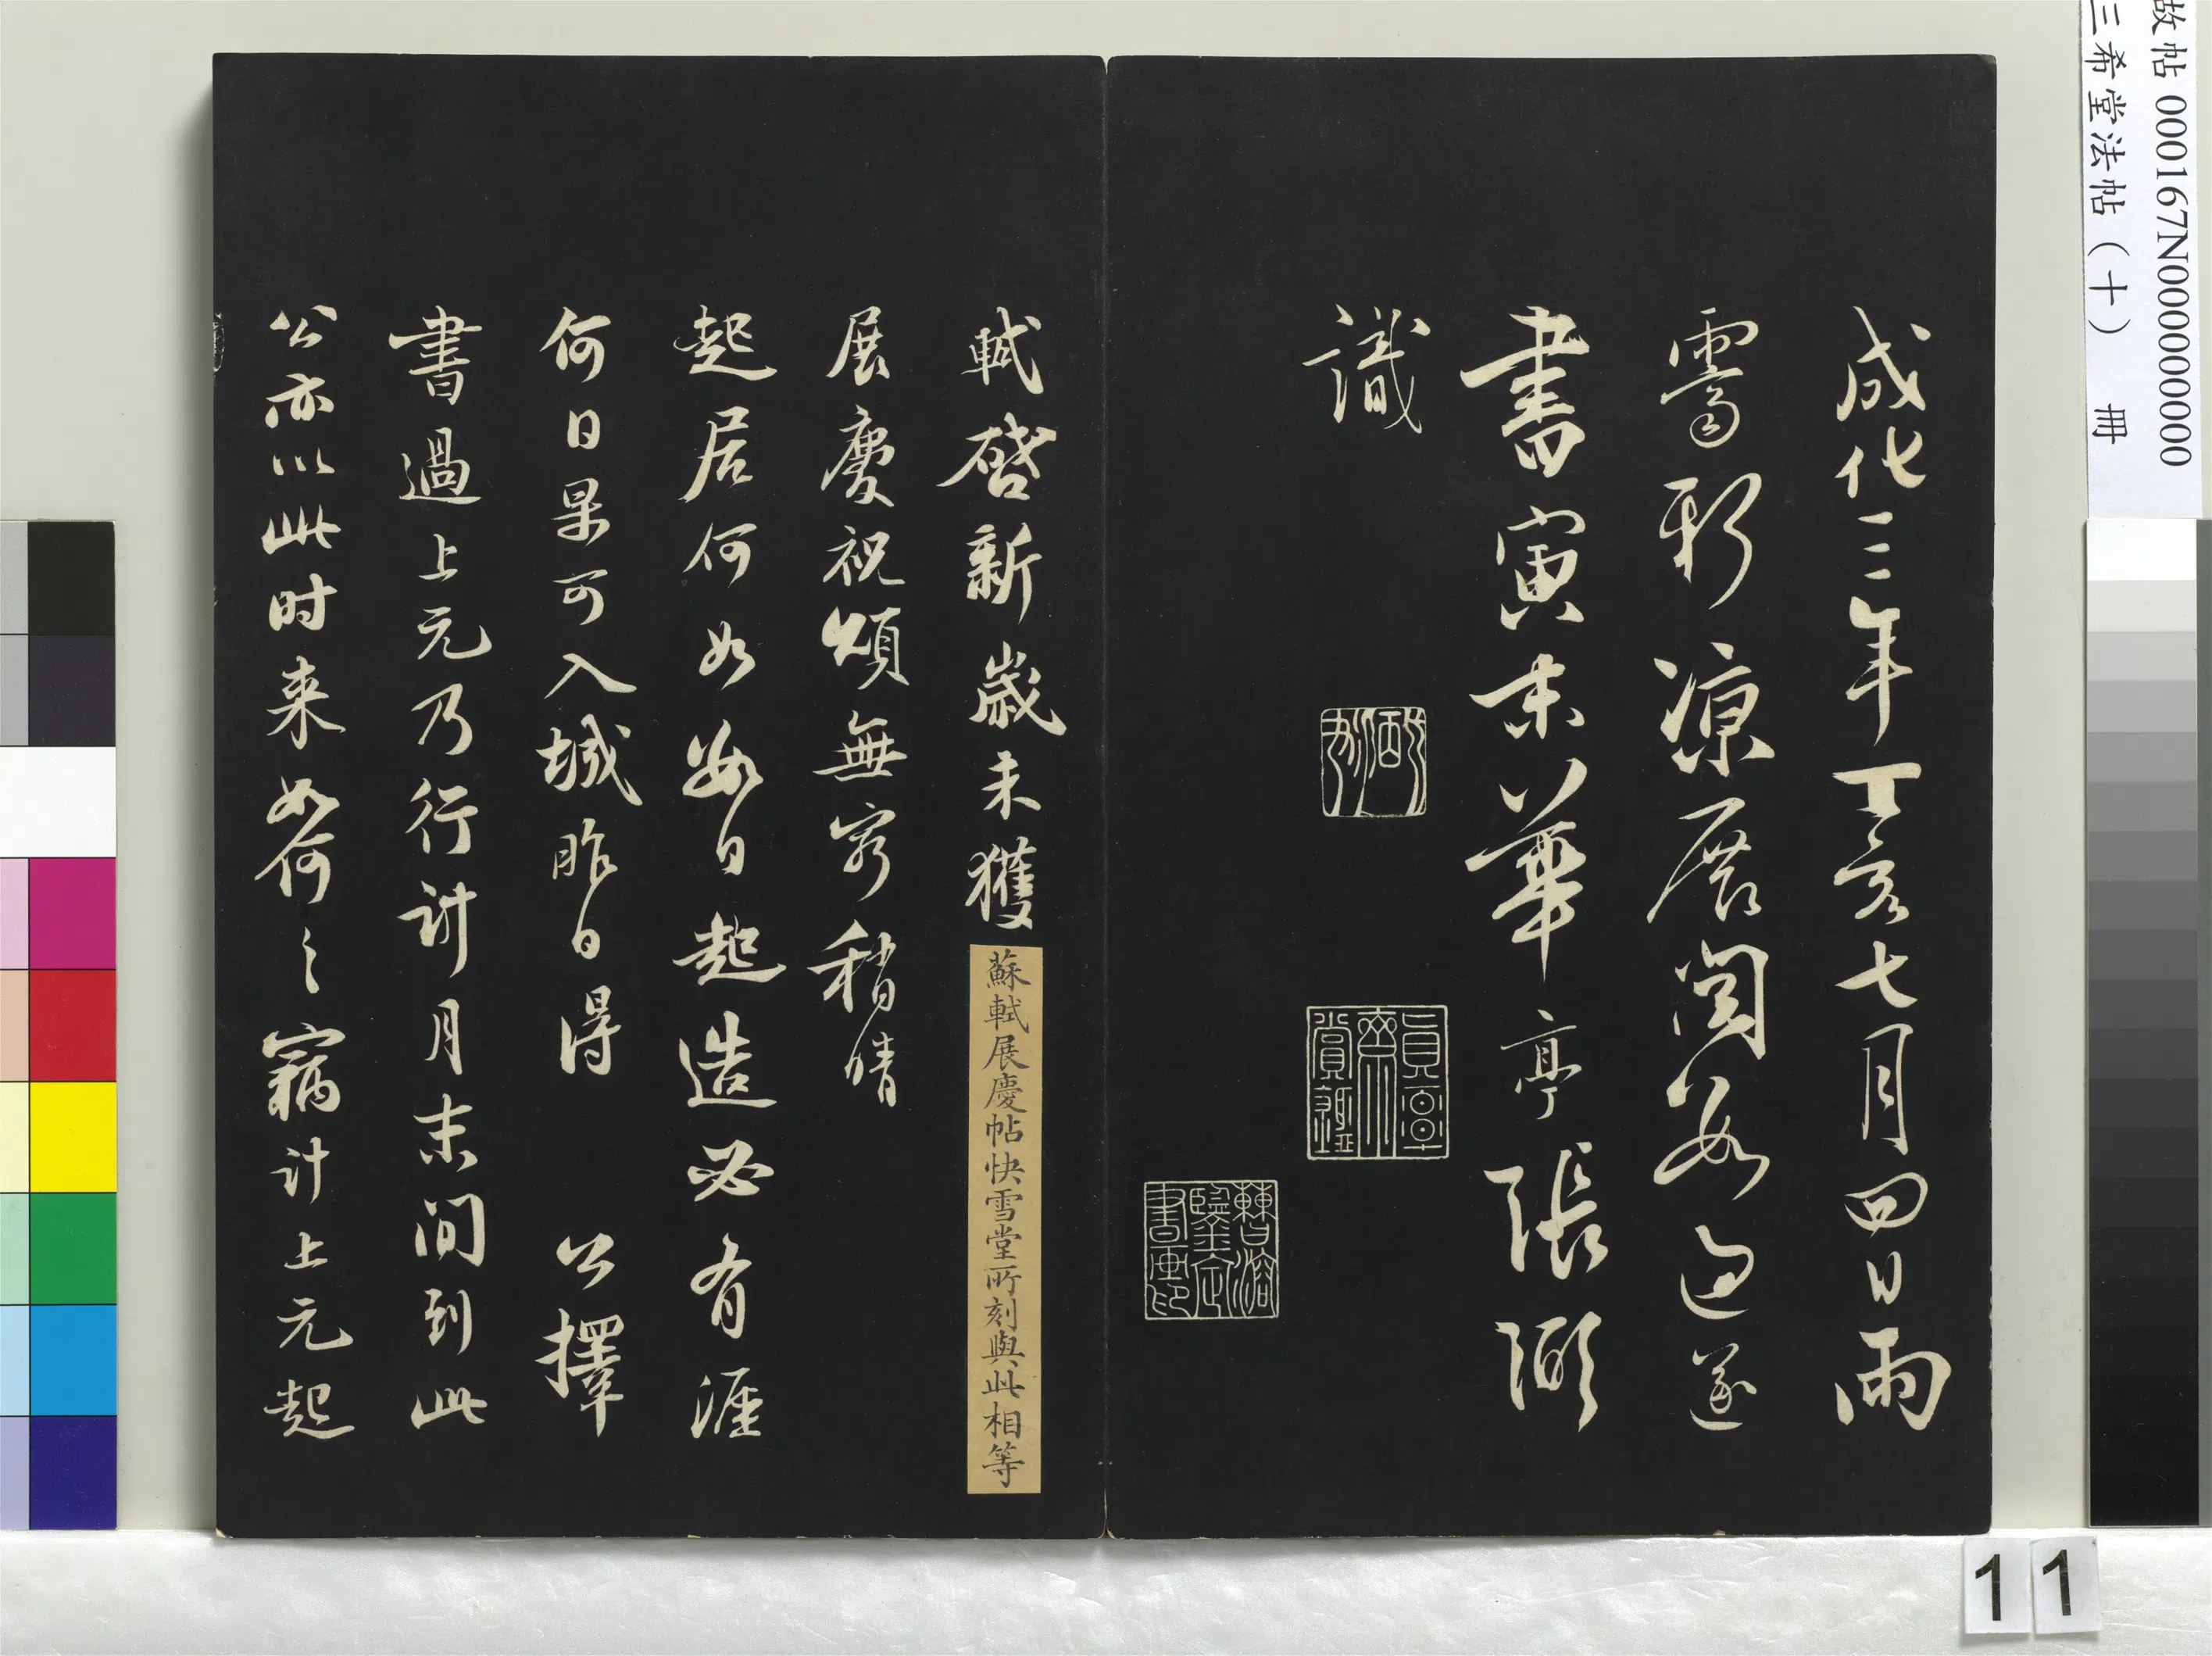 故帖 000167N000000000
三希堂法帖（十） 冊
成化三年丁亥七月四日雨
霽新涼展閱數過遂
書寅末華亭張弼
識
曹溶鑒定書畫印
軾啓新歲未獲
蘇軾展慶帖快雪堂所刻與此相等
展慶祝頌無窮稍晴
起居何如數日起造必有涯
何日果可入城昨日得 公擇
書過上元乃行計月末間到此
公亦以此時來如何〻竊計上元起
11